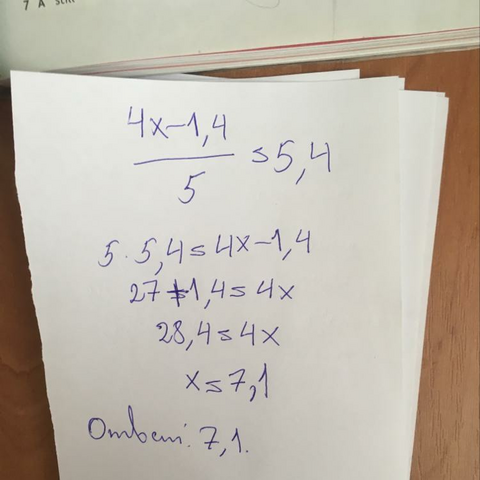 4x-1,4
= 5,4
5
5 · 5,4 = 4x-1,4
27+1,4 = 4x
28,4 = 4x
x = 7,1
Ответ: 7,1.